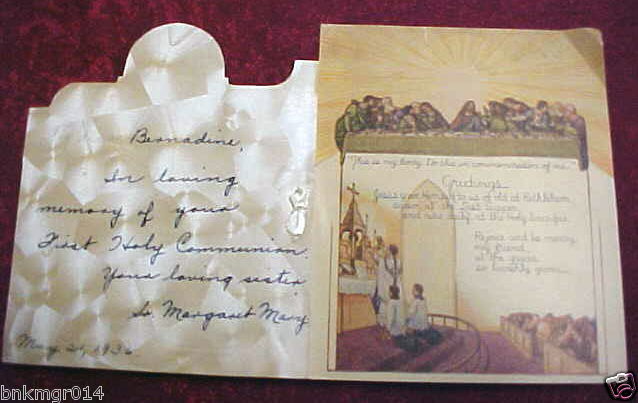 Bernadine,
In loving
memory of your
First Holy Communion.
Your loving sister
Sr Margaret Mary
May 24, 1936.
"This is my body. Do this in commemoration of me."
Greetings
Jesus gives Himself to us of old at Bethlehem
again at the Last Supper
and now daily at the Holy Sacrifice.
Rejoice and be merry
my friend
at the grace
so lovingly given.
bnkmgr014